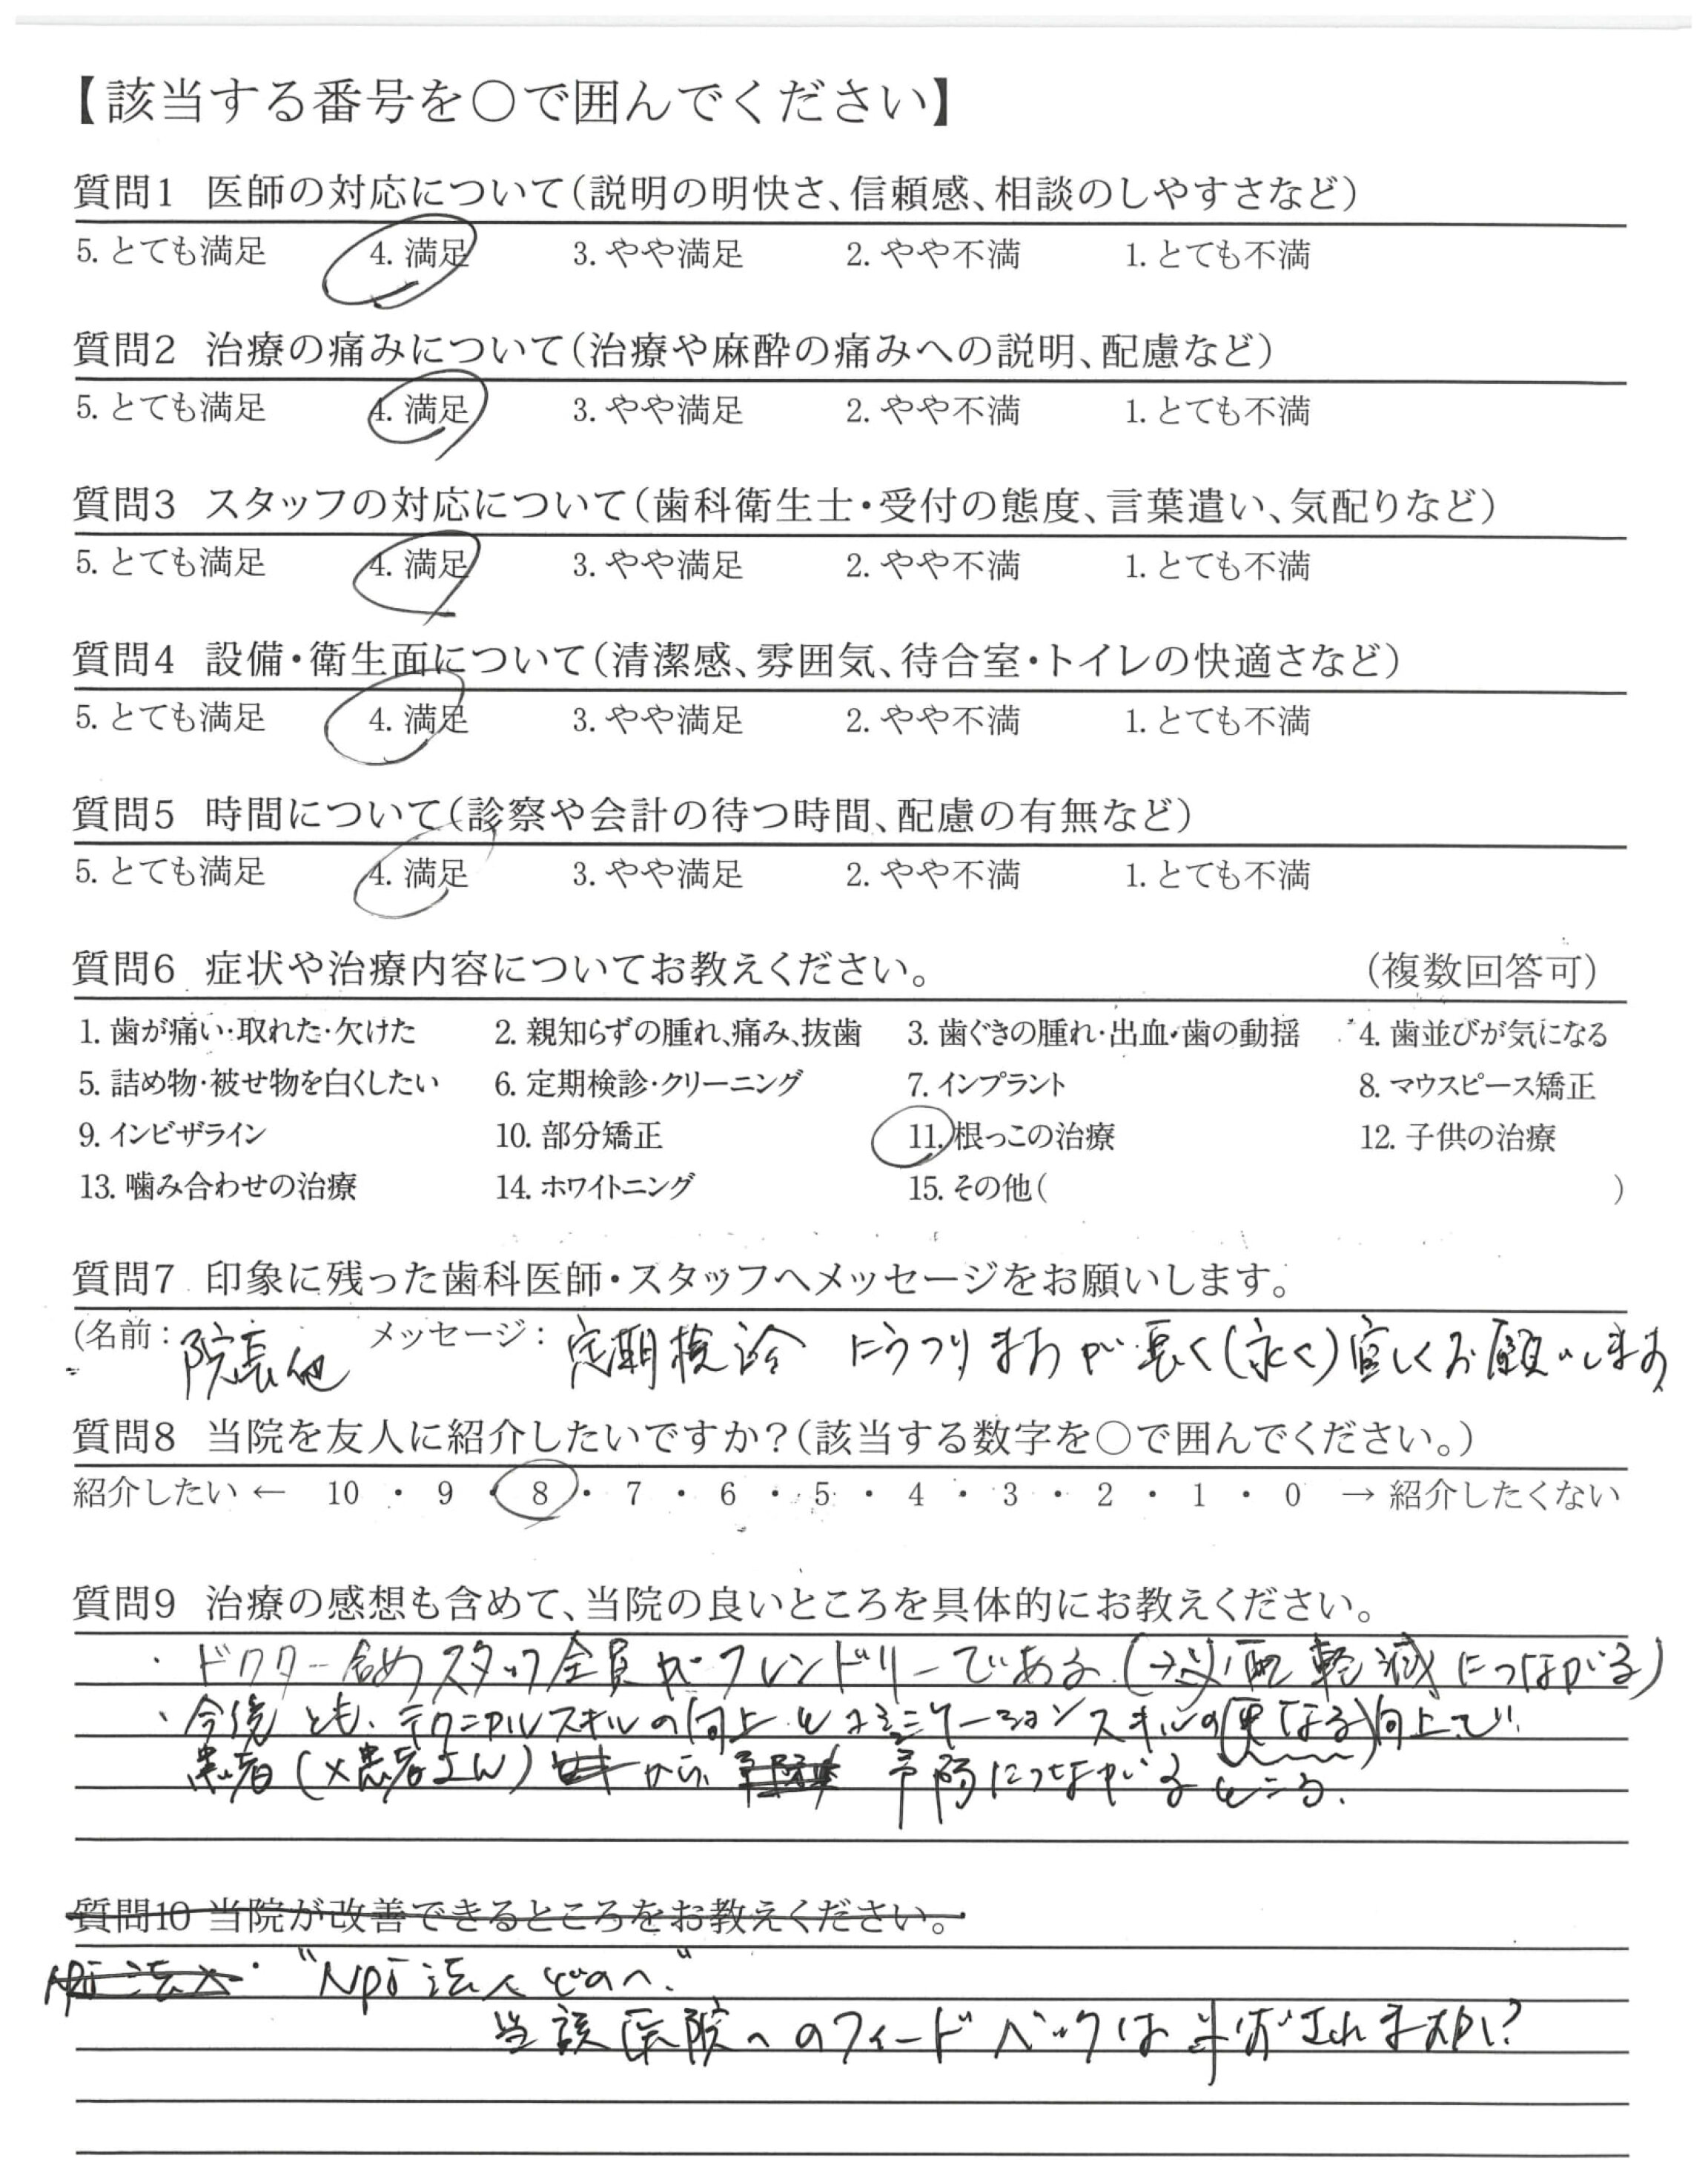 【該当する番号を○で囲んでください】
質問1 医師の対応について(説明の明快さ、信頼感、相談のしやすさなど)
5. とても満足 4. 満足 3. やや満足 2. やや不満 1. とても不満
質問2 治療の痛みについて(治療や麻酔の痛みへの説明、配慮など)
5. とても満足 4. 満足 3. やや満足 2. やや不満 1. とても不満
質問3 スタッフの対応について(歯科衛生士・受付の態度、言葉遣い、気配りなど)
5. とても満足 4. 満足 3. やや満足 2. やや不満 1. とても不満
質問4 設備・衛生面について(清潔感、雰囲気、待合室・トイレの快適さなど)
5. とても満足 4. 満足 3. やや満足 2. やや不満 1. とても不満
質問5 時間について(診察や会計の待つ時間、配慮の有無など)
5. とても満足 4. 満足 3. やや満足 2. やや不満 1. とても不満
質問6 症状や治療内容についてお教えください。 (複数回答可)
1. 歯が痛い・取れた・欠けた 2. 親知らずの腫れ、痛み、抜歯 3. 歯ぐきの腫れ・出血・歯の動揺 4. 歯並びが気になる
5. 詰め物・被せ物を白くしたい 6. 定期検診・クリーニング 7. インプラント 8. マウスピース矯正
9. インビザライン 10. 部分矯正 11. 根っこの治療 12. 子供の治療
13. 噛み合わせの治療 14. ホワイトニング 15. その他( )
質問7 印象に残った歯科医師・スタッフへメッセージをお願いします。
(名前: 院長他 メッセージ: 定期検診 にうつりますが 長く(永く)宜しくお願いします
質問8 当院を友人に紹介したいですか?(該当する数字を○で囲んでください。)
紹介したい ← 10 ・ 9 ・ 8 ・ 7 ・ 6 ・ 5 ・ 4 ・ 3 ・ 2 ・ 1 ・ 0 → 紹介したくない
質問9 治療の感想も含めて、当院の良いところを具体的にお教えください。
・ドクター含めスタッフ全員がフレンドリーである(→心配軽減につながる)
・今後とも、テクニカルスキルの向上とコミュニケーションスキルの(更なる)向上で、
患者(×患者さん) から 予防につながるところ.
質問10 当院が改善できるところをお教えください。
・"NPO法人どのへ."
当該医院へのフィードバックは 半がされますか?